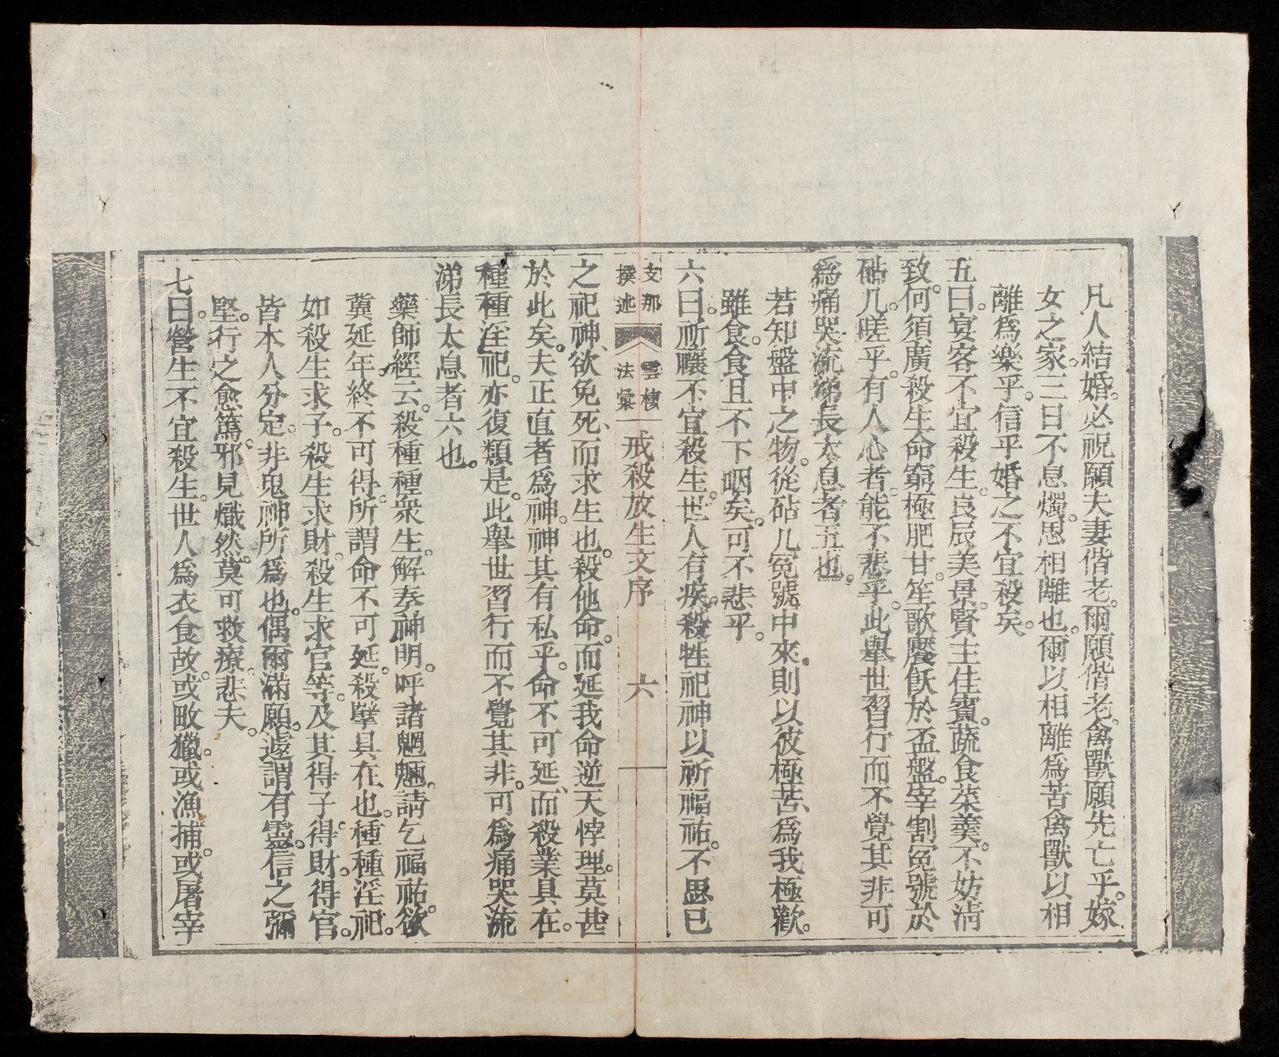 凡人結婚。必祝願夫妻偕老。爾願偕老。禽獸願先亡乎。嫁
女之家。三日不息燭。思相離也。爾以相離爲苦。禽獸以相
離爲樂乎。信乎婚之不宜殺矣。
五曰。宴客不宜殺生。良辰美景。賢主佳賓。蔬食菜羹。不妨淸
致。何須廣殺生命。窮極肥甘。笙歌饜飫於盃盤。宰割冤號於
砧几。嗟乎。有人心者。能不悲乎。此舉世習行而不覺其非。可
爲痛哭流涕長太息者五也。
若知盤中之物。從砧几冤號中來。則以彼極苦。爲我極歡。
雖食。食且不下咽矣。可不悲乎。
六曰。祈禳不宜殺生。世人有疾。殺牲祀神。以祈福祐。不思已
支那
撰述
雲棲
法彙
戒殺放生文序
六
之祀神、欲免死、而求生也。殺他命。而延我命。逆天悖理。莫甚
於此矣。夫正直者爲神。神其有私乎。命不可延、而殺業具在。
種種淫祀。亦復類是。此舉世習行而不覺其非。可爲痛哭流
涕長太息者六也。
藥師經云。殺種種衆生。解奏神明。呼諸魍魎。請乞福祐。欲
冀延年。終不可得。所謂命不可延。殺孽具在也。種種淫祀。
如殺生求子。殺生求財。殺生求官等。及其得子。得財。得官。
皆本人分定。非鬼神所爲也。偶爾滿願。遽謂有靈。信之彌
堅。行之愈篤。邪見熾然。莫可救療。悲夫。
七曰。營生不宜殺生。世人爲衣食故。或畋獵。或漁捕。或屠宰